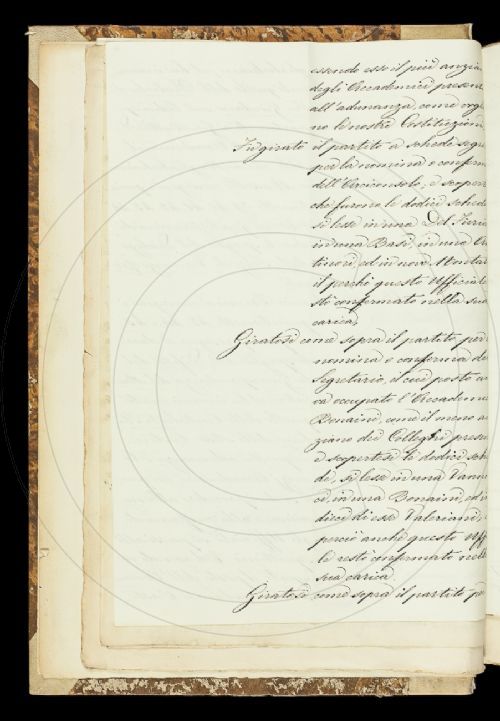 essendo esso il più anzia
degli Accademici presen
all'adunanza, come org
no le nostre Costituzioni
Fu girato il partito a schede segre
per la nomina e conferm
dell'Arciconsolo, e scoperte
che furono le dodici schede
si lesse in una Del Furia
in una Basi, in una
ed in nove Montal
il perchè questo Uffiziale
stò confermato nella sua
carica.
Giratosi come sopra il partito per
nomina e conferma de
Segretario, il cui posto
va occupato l'Accademi
Bonaini, come il meno
ziano dei Colleghi presen
e scopertesi le dodici sche
de, si lesse in una Vannu
ci, in una Bonaini, ed in
dieci di esse Valeriani,
perciò anche questo Uffi
le restò confermato nella
sua carica.
Giratosi come sopra il partito pe